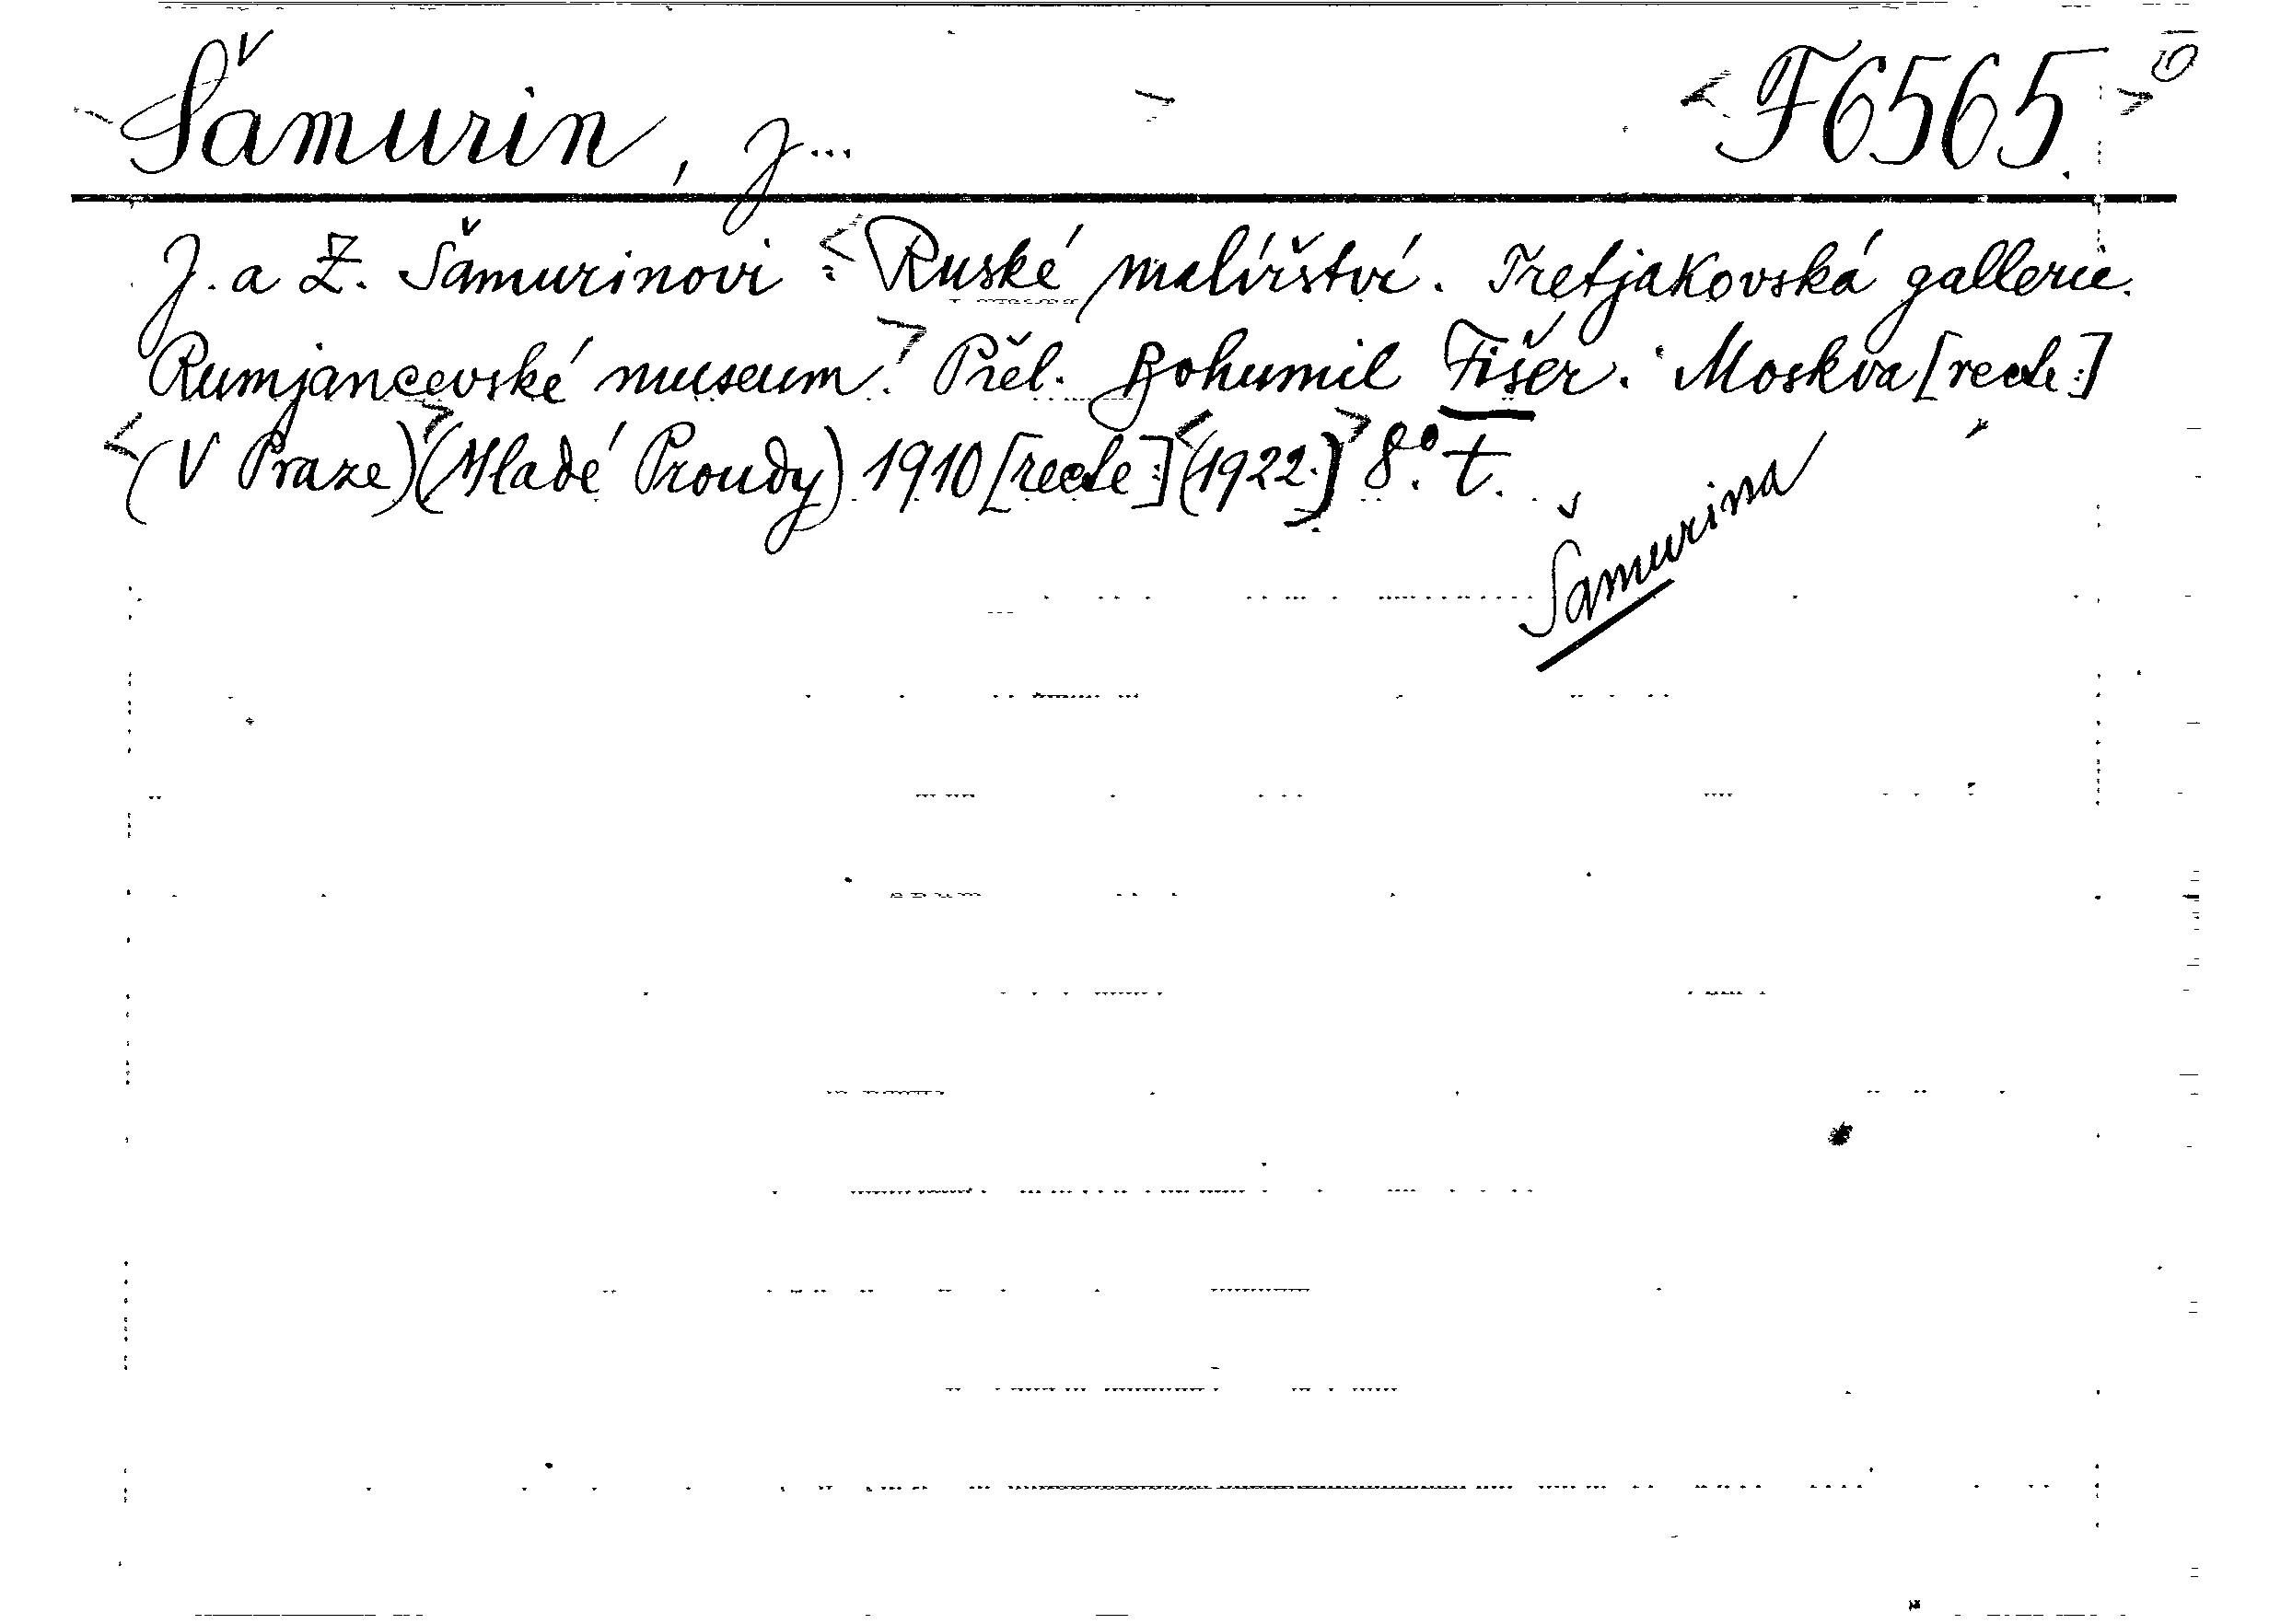 Šamurin, J... F6565.
J. a Z. Šamurinovi: Ruské malířství. Treťjakovská gallerie.
Rumjancevské museum. Přel. Bohumil Fišer. Moskva [recte:]
(V Praze) (Mladé Proudy) 1910 [recte:] (1922.) 8°. t.
Šamurina